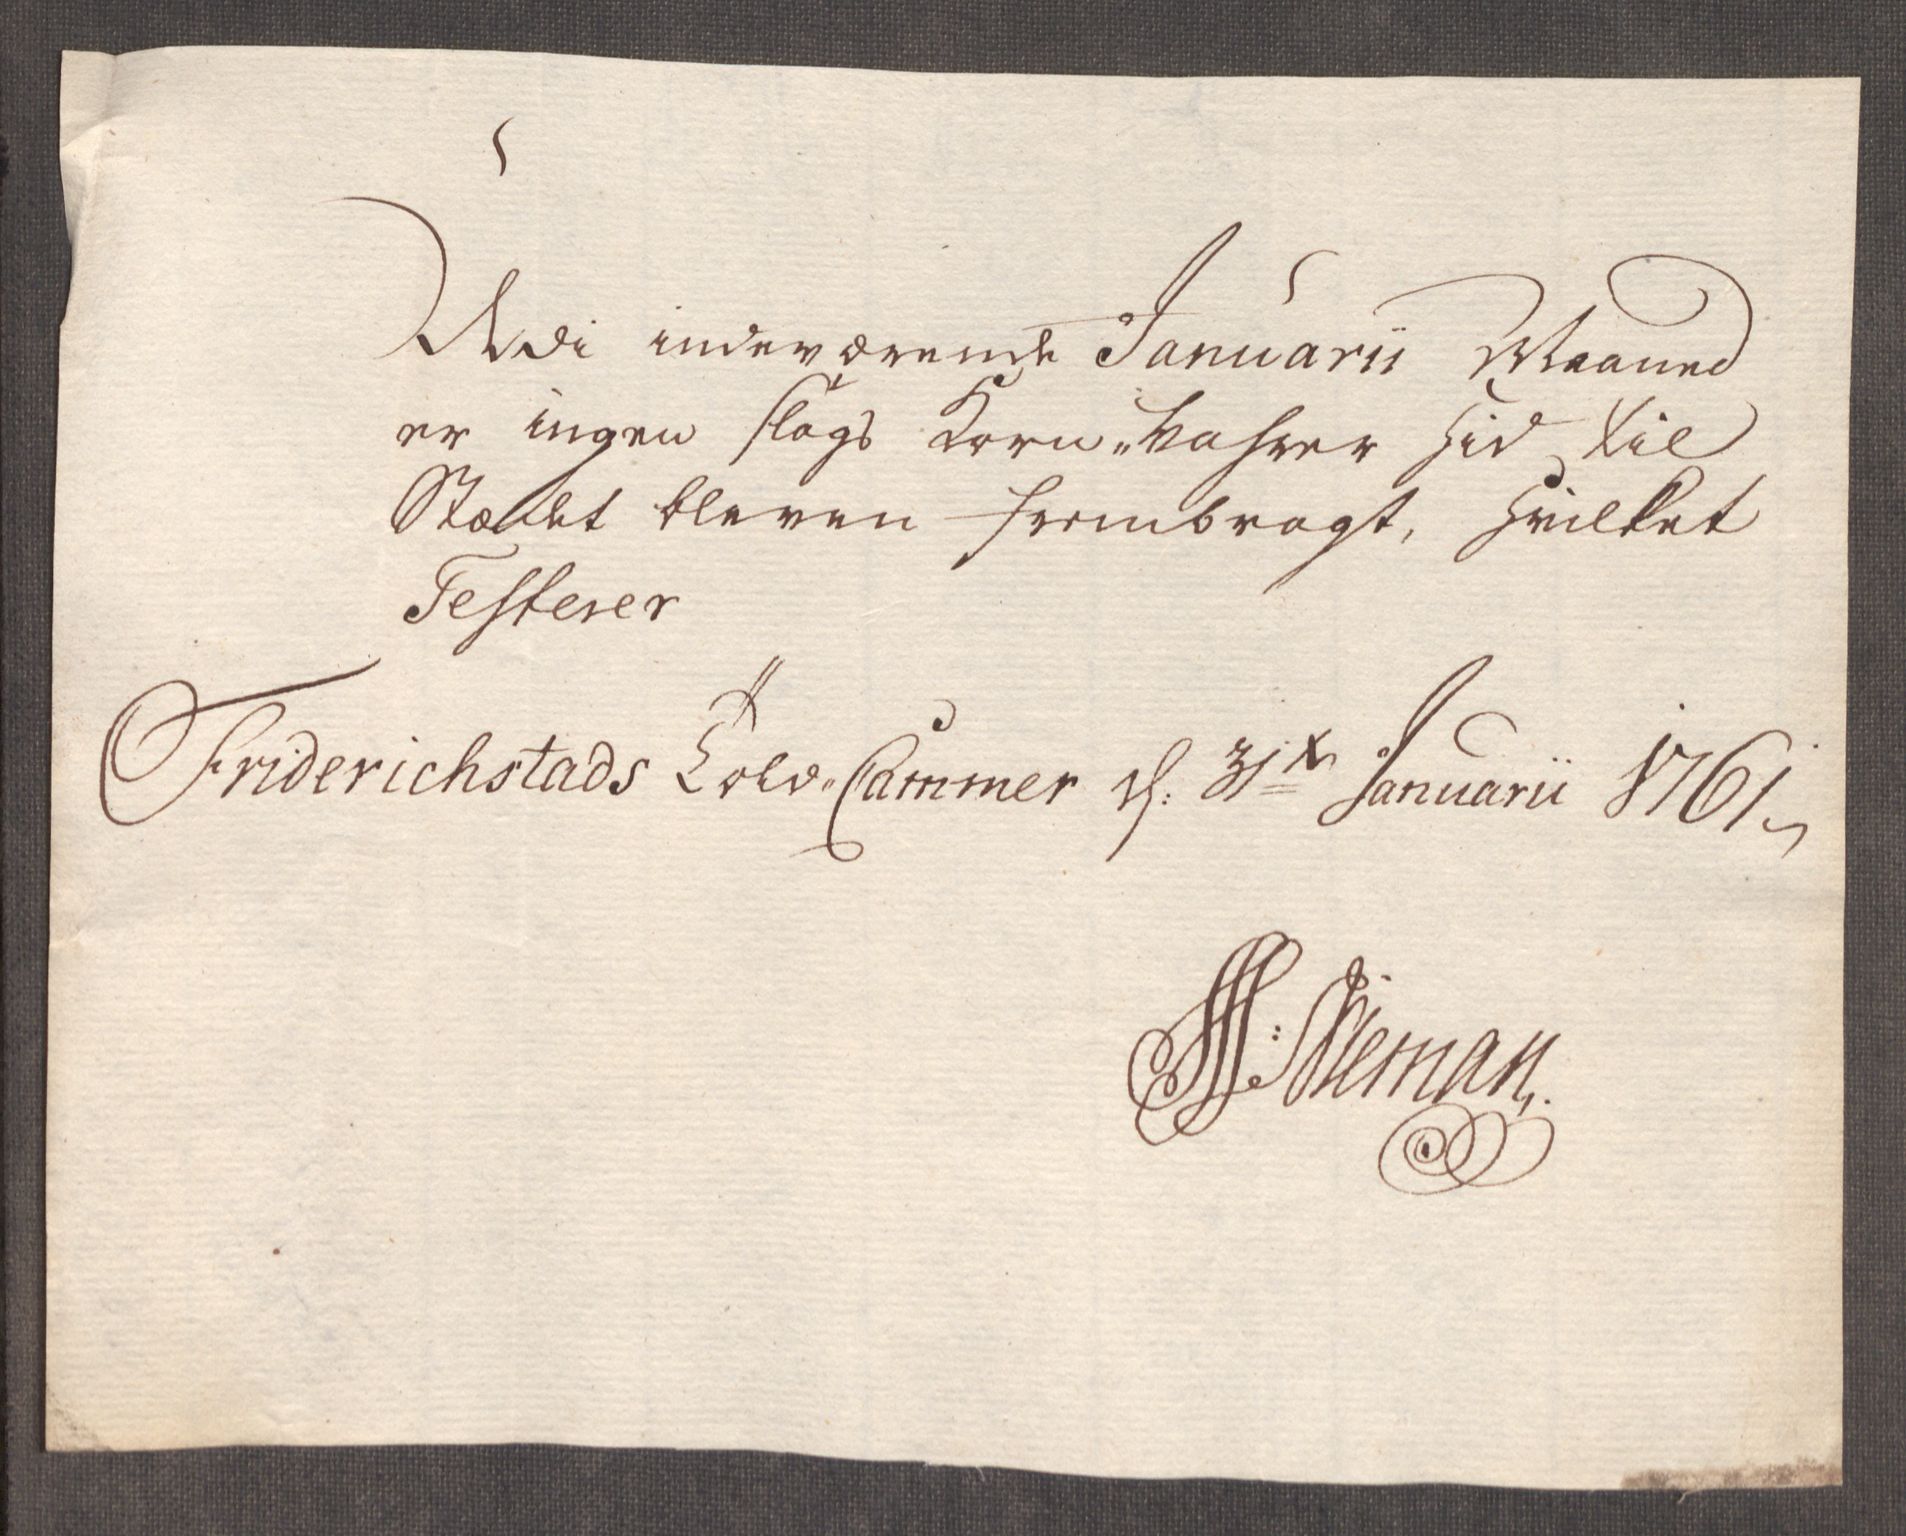 Udi indeværende Januarii Maaned
er ingen slags Korn-Vahrer hid til
Stædet bleven frembragt, hvilket
Testerer
Friderichstads Told-Cammer d: 31te Januarii 1761